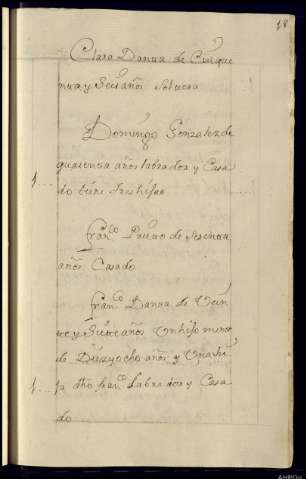 18
Clara Danra de Cinque
nta y Seis años Soltera
Domingo Gonzalez de
quarenta años labrador y Casa
1... do tiene tres hijas
Fran.co Prieto de Sesenta
años Casado
Fran.co Danra de Vein
te y Siete años Un hijo menor
de Diez y ocho años y Una hi
1... ja dho fran.co Labrador y Casa
do
AHPOU